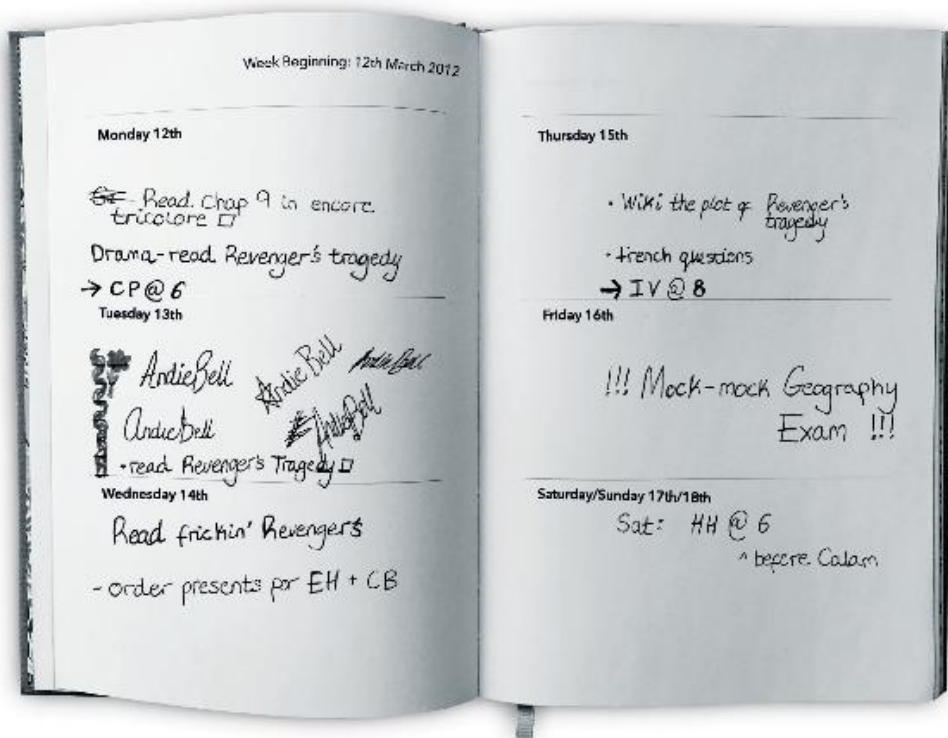 Week Beginning: 12th March 2012
Monday 12th
Read Chap 9 in encore
tricolore
Drama-read Revenger's tragedy
→ CP @ 6
Tuesday 13th
AndieBell
Andie Bell
AndieBell
AndieBell
AndieBell
• read Revenger's Tragedy
Wednesday 14th
Read frickin' Revengers
- order presents for EH + CB
Thursday 15th
• Wiki the plot of Revenger's
tragedy
• French questions
→ IV @ 8
Friday 16th
!!! Mock-mock Geography
Exam !!!
Saturday/Sunday 17th/18th
Sat: HH @ 6
^ before Calam